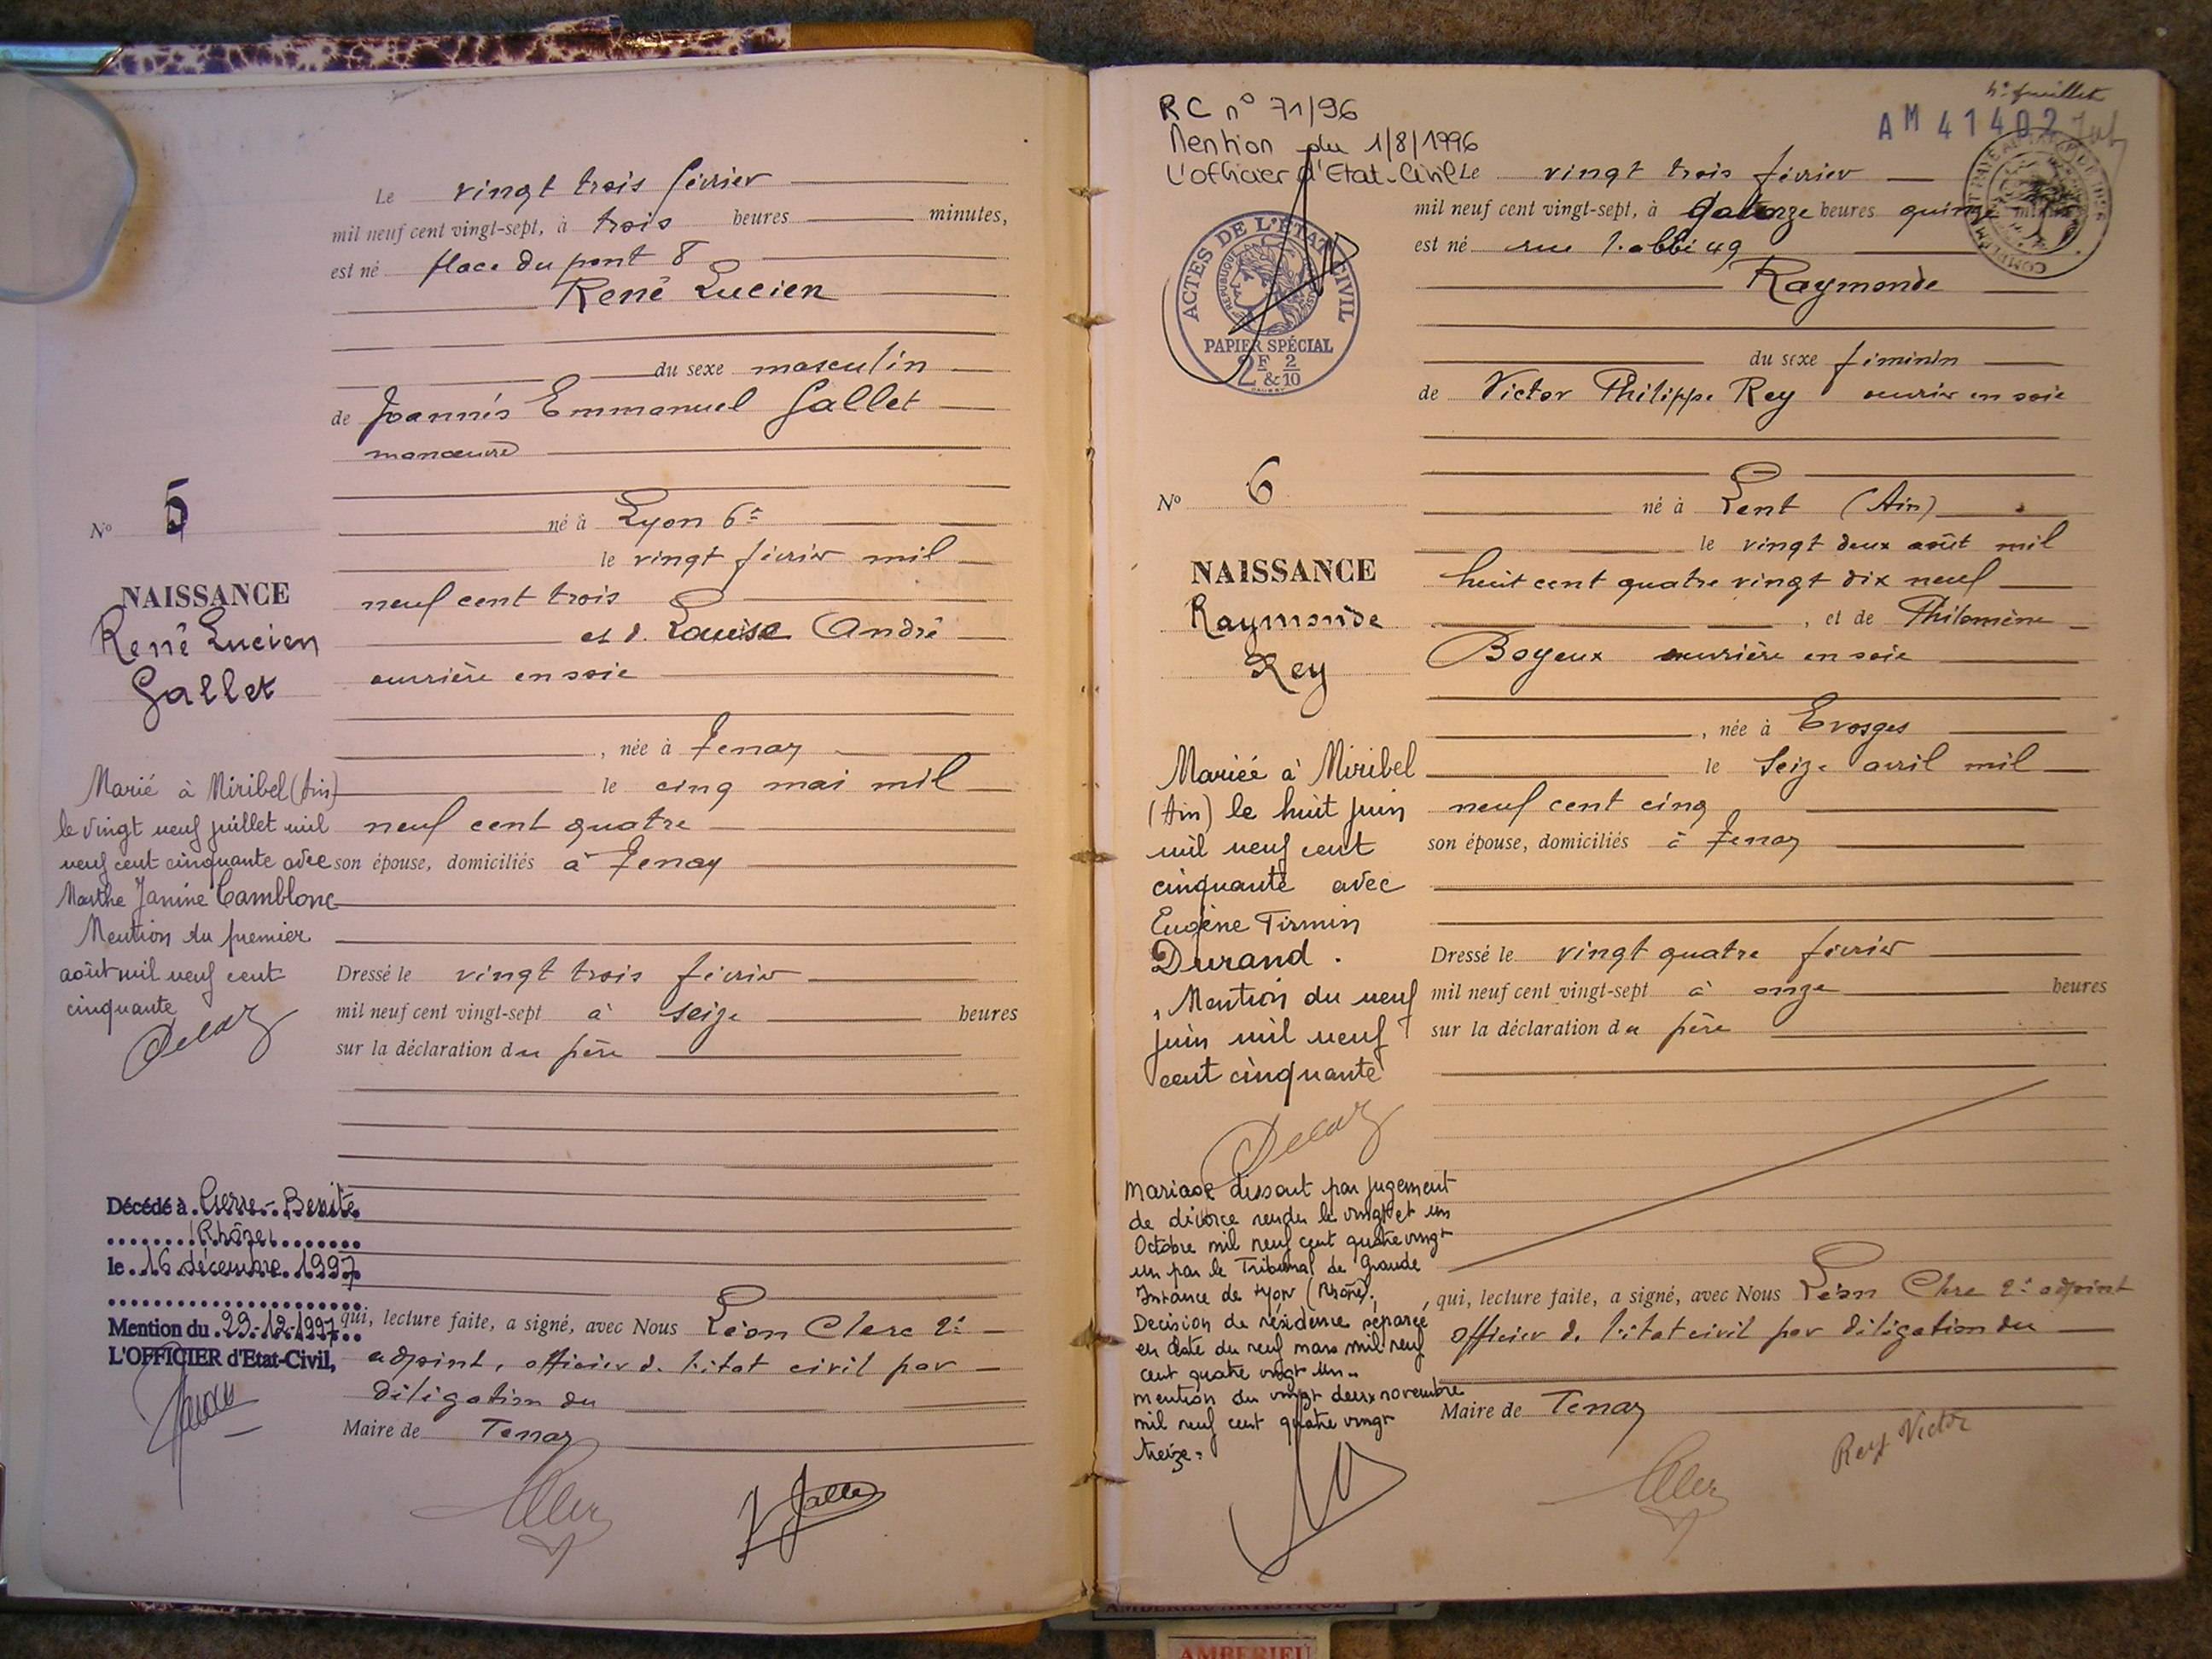 Le vingt trois février
mil neuf cent vingt-sept, à trois heures minutes,
est né place du pont 8
René Lucien
du sexe masculin
de Joannès Emmanuel Gallet
manœuvre
né à Lyon 6e
le vingt février mil
neuf cent trois
et d. Louise André
ouvrière en soie
, née à Tenay
le cinq mai mil
neuf cent quatre
son épouse, domiciliés à Tenay
Dressé le vingt trois février
mil neuf cent vingt-sept à seize heures
sur la déclaration du père
qui, lecture faite, a signé, avec Nous Léon Clerc 2e
adjoint, officier de l'état civil par
délégation du
Maire de Tenay
J Gallet
No 5
NAISSANCE
René Lucien
Gallet
Marié à Miribel (Ain)
le vingt neuf juillet mil
neuf cent cinquante avec
Marthe Janine Camblonc
Mention du premier
août mil neuf cent
cinquante
Décédé à Pierre-Bénite
(Rhône)
le 16 décembre 1997
Mention du 29-12-1997
L'OFFICIER d'Etat-Civil,
4e feuillet
AM 41402
RC n° 71/96
Mention du 1/8/1996
L'officier d'Etat-Civil
ACTES DE L'ÉTAT CIVIL
RÉPUBLIQUE
PAPIER SPÉCIAL
2F 2
& 10
Le vingt trois février
mil neuf cent vingt-sept, à quatorze heures quinze
est né rue l'abbé 49
Raymonde
du sexe féminin
de Victor Philippe Rey ouvrier en soie
né à Lent (Ain)
le vingt deux août mil
huit cent quatre vingt dix neuf
, et de Philomène
Boyeux ouvrière en soie
, née à Evosges
le seize avril mil
neuf cent cinq
son épouse, domiciliés à Tenay
Dressé le vingt quatre février
mil neuf cent vingt-sept à onze heures
sur la déclaration du père
qui, lecture faite, a signé, avec Nous Léon Clerc 2e adjoint
officier de l'état civil par délégation du
Maire de Tenay
Rey Victor
No 6
NAISSANCE
Raymonde
Rey
Mariée à Miribel
(Ain) le huit juin
mil neuf cent
cinquante avec
Eugène Firmin
Durand.
Mention du neuf
juin mil neuf
cent cinquante
Mariage dissout par jugement
de divorce rendu le vingt et un
Octobre mil neuf cent quatre vingt
un par le Tribunal de Grande
Instance de Lyon (Rhône).
Décision de résidence séparée
en date du neuf mars mil neuf
cent quatre vingt un.
mention du vingt deux novembre
mil neuf cent quatre vingt
treize.
AMBERIEU ARTISTIQUE
AMBERIEU